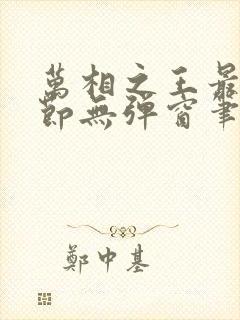 萬相之王最
節無彈窗筆
鄭中基